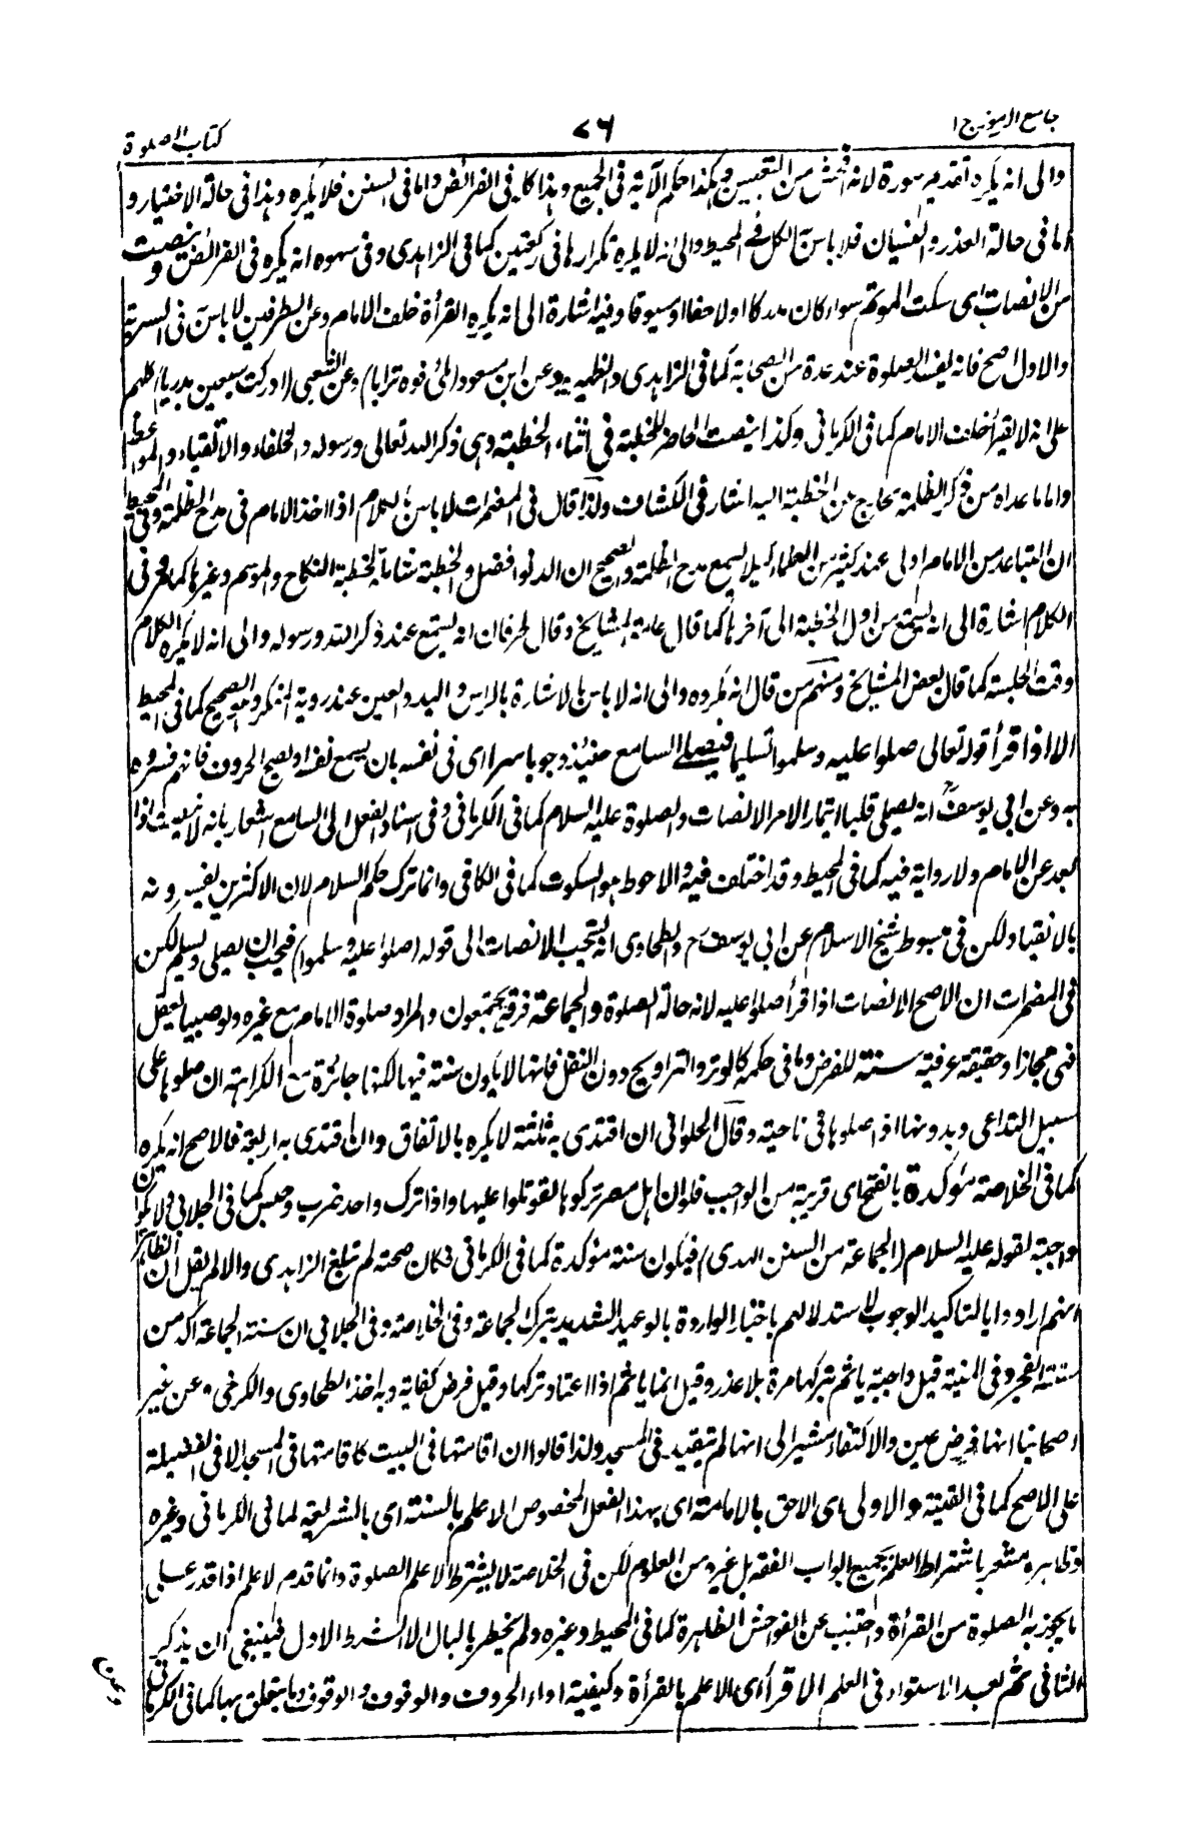 جامع الرموز ج ١
٧٦
كتاب الصلوة
والى انه يكره تقديم سورة لانه افحش من التعيين وهكذا حكم الآية فى الجميع وهذا كله فى الفرائض واما فى السنن فلا يكره وهذا فى حالة الاختيار و
اما فى حالة العذر والنسيان فلا باس الكل فى المحيط والى انه لا يكره تكرارها فى ركعتين كما فى الزاهدى وفى سهوه انه يكره فى الفرائض وينصت
من الانصات اى سكت المؤتم سواء كان مدركا او لاحقا او مسبوقا وفيه اشارة الى انه يكره القرأة خلف الامام وعن الطرفين لا باس فى السرية
والاول اصح فانه يفسد الصلوة عند عدة من الصحابة كما فى الزاهدى والظهيرية وعن ابن مسعود (ملئ فوه ترابا) وعن الشعبى (ادركت سبعين بدريا) كلهم
على انه لا يقرأ خلف الامام كما فى الكرمانى وكذا ينصت الحاضر للخطبة فى اثناء الخطبة وهى ذكر الله تعالى ورسوله والخلفاء والاتقياء والمواعظ
واما ما عداه من ذكر الظلمة فخارج من الخطبة اليه اشار فى الكشاف ولذا قال فى المضمرات لا باس بالكلام اذا اخذ الامام فى مدح الظلمة وفى المحيط
ان التباعد من الامام اولى عند كثير من العلماء كيلا يسمع مدح الظلمة والصحيح ان الدنو افضل والخطبة شاملة لخطبة النكاح والموسم وغيرها كما مر وفى
الكلام اشارة الى انه يستمع من اول الخطبة الى آخرها كما قال عامة المشايخ وقال الجرفان انه يستمع عند ذكر الله ورسوله والى انه لا يكره الكلام
وقت الجلسة كما قال بعض المشايخ ومنهم من قال انه مكروه والى انه لا باس بالاشارة بالراس واليد والعين عند روية المنكر وهو الصحيح كما فى المحيط
الا اذا قرأ قوله تعالى صلوا عليه وسلموا تسليما فيصلى السامع حينئذ وجوبا سرا اى فى نفسه بان يسمع نفسه او يصحح الحروف فانهم فسروه
به وعن ابى يوسف انه يصلى قلبا ايتمار الامر الانصات والصلوة عليه السلام كما فى الكرمانى وفى اسناد الفعل الى السامع اشعار بانه لا ينصت اذا
بعد عن الامام ولا رواية فيه كما فى المحيط وقد اختلف فيه والاحوط هو السكوت كما فى الكافى وانما ترك حكم السلام لان الاكثرين يفسرونه
بالانقياد لكن فى مبسوط شيخ الاسلام عن ابى يوسف رح والطحاوى انه يستحب الانصات الى قوله (صلوا عليه وسلموا) فيجب ان يصلى ويسلم لكن
فى المضمرات ان الاصح الانصات اذا قرأ صلوا عليه لانه حالة الصلوة والجماعة فرقة يجتمعون والمراد صلوة الامام مع غيره ولو صبيا يعقل
فهى مجازا وحقيقة عرفية سنة للفرض وما فى حكمه كالوتر والتراويح دون النفل فانها لا يكون سنة فيها لكنها جائزة مع الكراهة ان صلوها على
سبيل التداعى وبدونها اذا صلوها فى ناحية وقال الحلوانى ان اقتدى به ثلثة لا يكره بالاتفاق وان اقتدى به اربعة فالاصح انه يكره
كما فى الخلاصة مؤكدة بالفتح اى قريبة من الواجب فلو ان اهل مصر تركوها لقوتلوا عليها واذا ترك واحد ضرب وحبس كما فى الجلابى ولا يكون
واجبة لقوله عليه السلام (الجماعة من السنن الهدى) فيكون سنة مؤكدة كما فى الكرمانى فكان صحته لم تبلغ الزاهدى والا لم يقل ان الظاهر
انهم ارادوا بالتاكيد الوجوب لاستدلالهم باخبار الواردة بالوعيد الشديد بترك الجماعة وفى الخلاصة وفى الجلابى ان سنة الجماعة آكد من
سنة الفجر وفى المنية قيل واجبة ياثم بتركها مرة بلا عذر وقيل انما ياثم اذا اعتاد تركها وقيل فرض كفاية وبه اخذ الطحاوى والكرخى وعن غير
اصحابنا انها فرض عين والاكتفاء مشير الى انها لم تتقيد فى المسجد ولذا قالوا ان اقامتها فى البيت كاقامتها فى المسجد الا فى الفضيلة
على الاصح كما فى القنية والاولى اى الاحق بالامامة اى بهذا الفعل المخصوص الاعلم بالسنة اى بالشريعة كما فى الكرمانى وغيره
وظاهره مشعر باشتراط العلم بجميع ابواب الفقه بل غيره من العلوم لكن فى الخلاصة لا يشترط الا علم الصلوة وانما قدم الاعلم اذا قدر على
ما يجوز به الصلوة من القرأة واجتنب عن الفواحش الظاهرة كما فى المحيط وغيره ولم يخطر بالبال الا الشرط الاول فينبغى ان يذكر
الثانى ثم بعد الاستواء فى العلم الاقرأ اى الاعلم بالقرأة وكيفية اداء الحروف والوقوف وما يتعلق بها كما فى الكرمانى
وعن